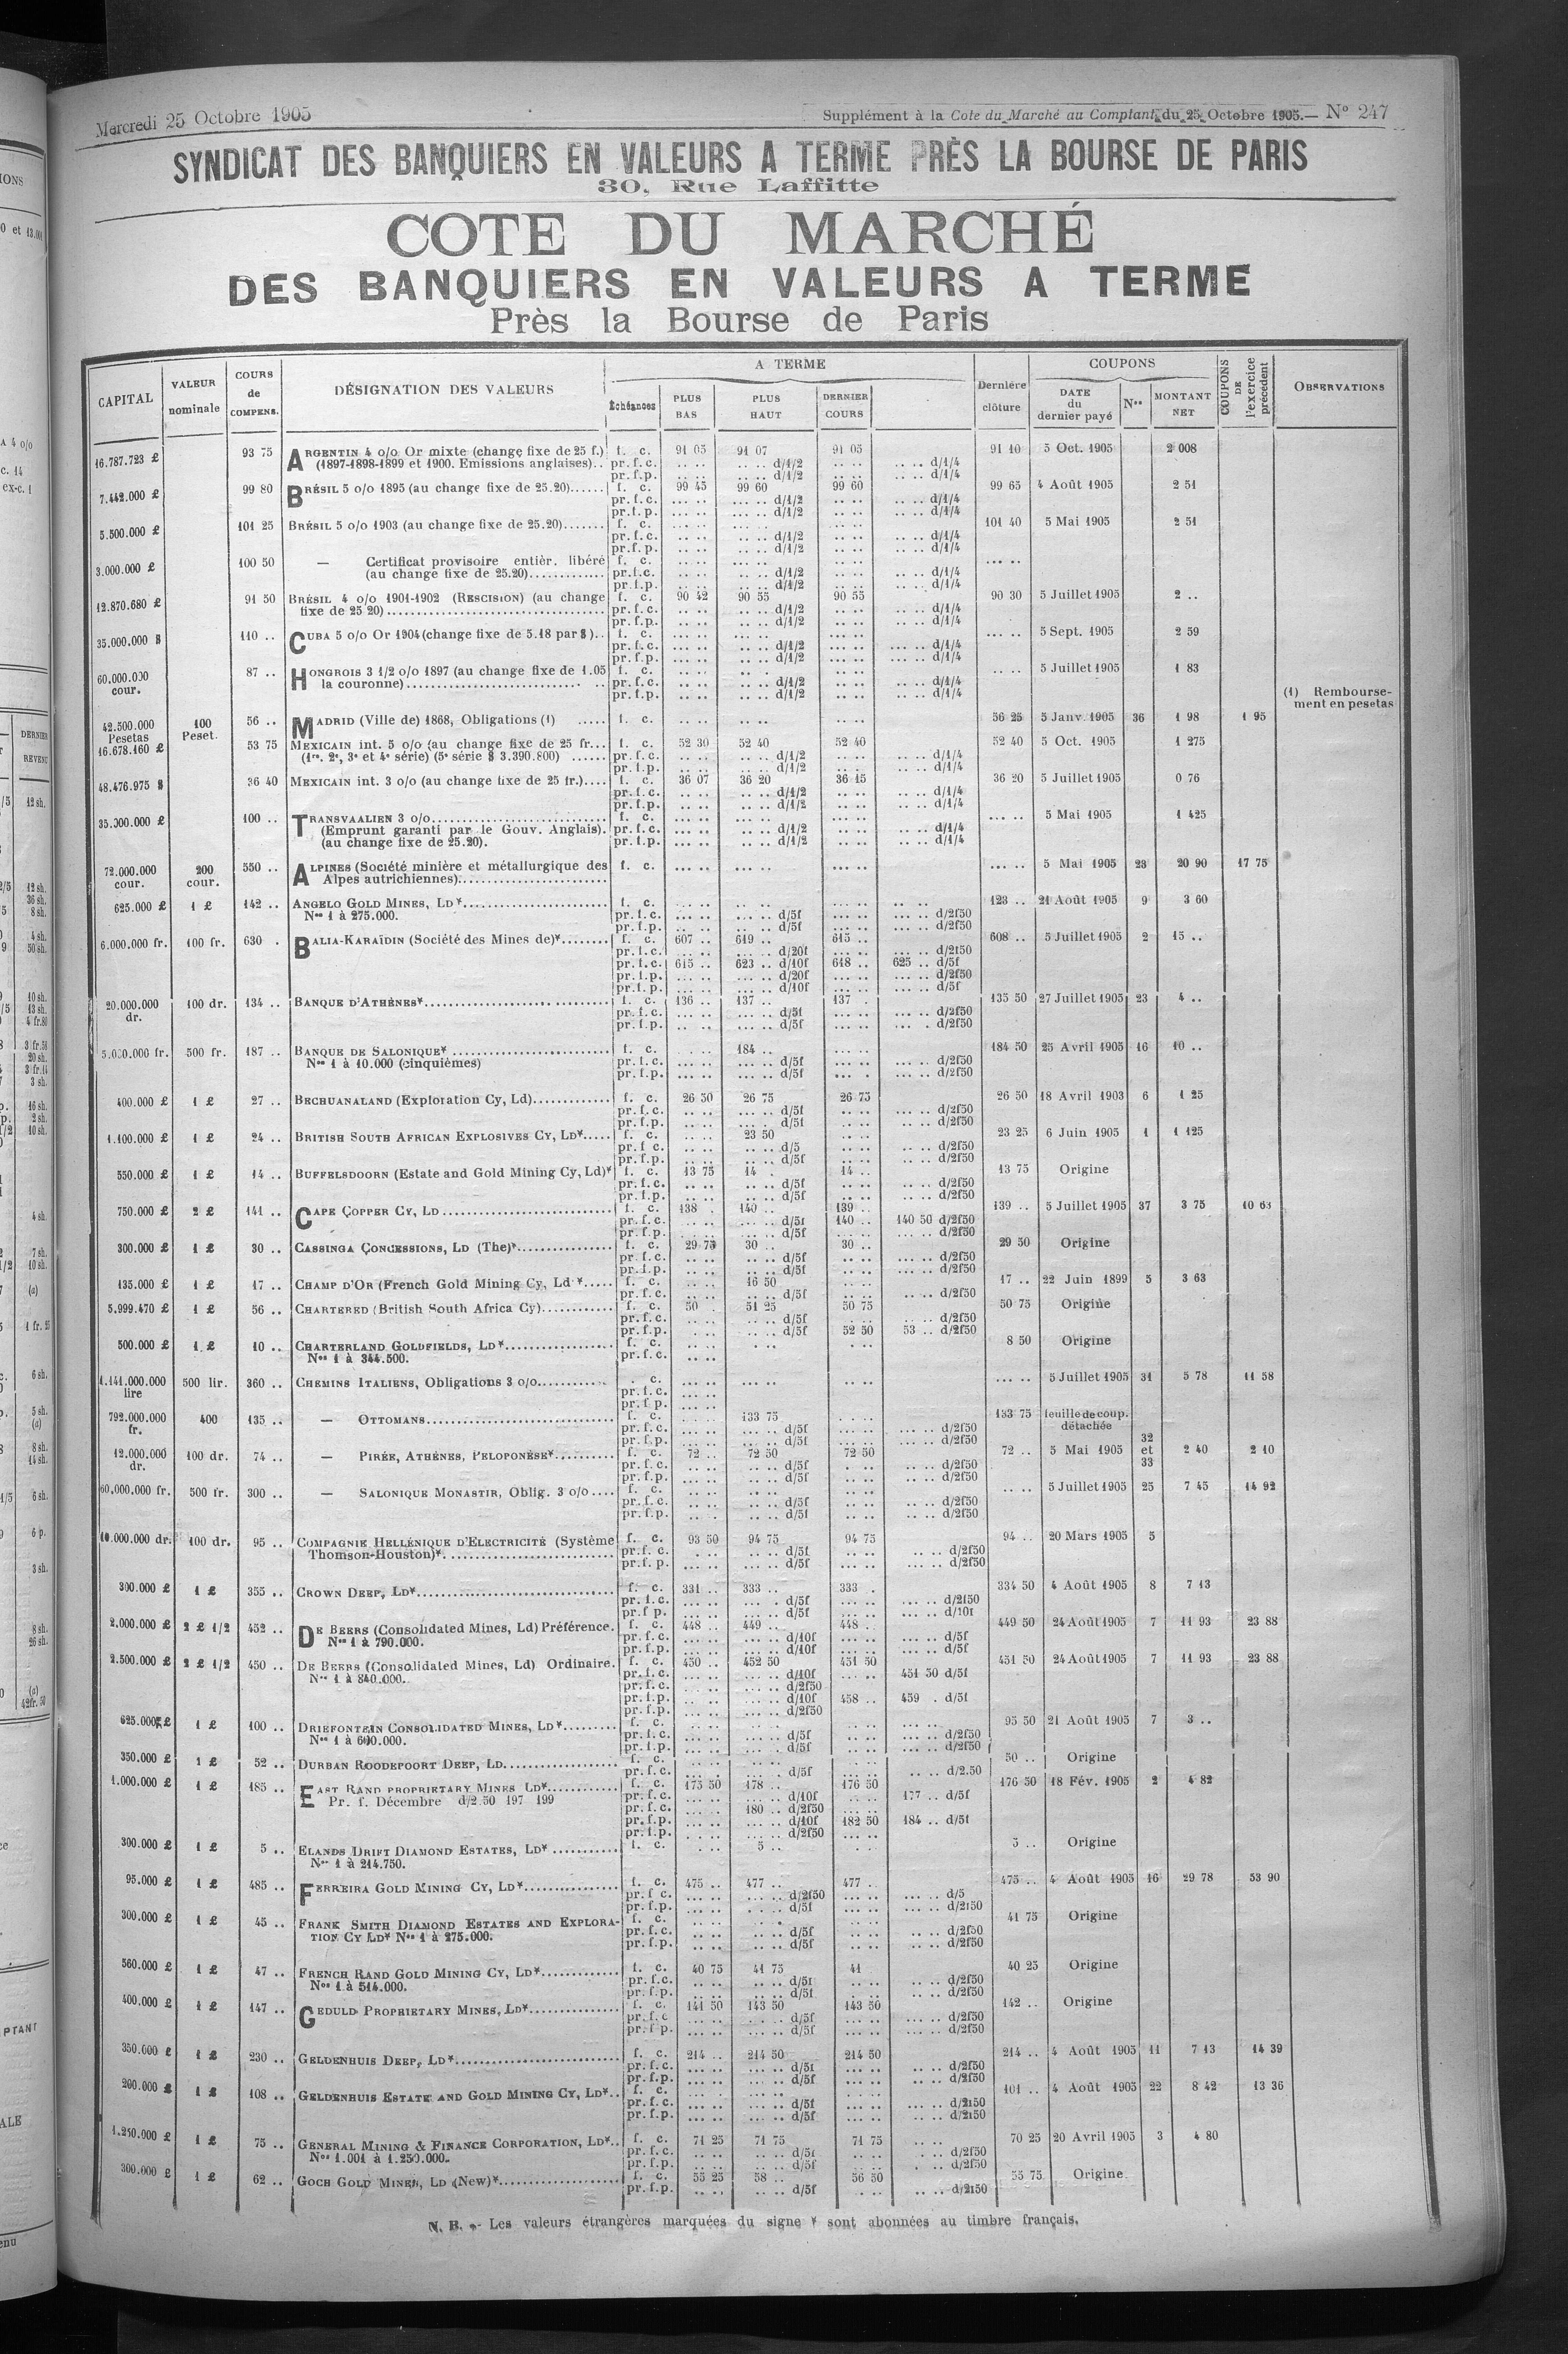 Mercredi 25 Octobre 1905
Supplément à la Cote du Marché au Comptant du 25 Octobre 1905.— N° 247
SYNDICAT DES BANQUIERS EN VALEURS A TERME PRÈS LA BOURSE DE PARIS
30, Rue Laffitte
COTE DU MARCHÉ
DES BANQUIERS EN VALEURS A TERME
Près la Bourse de Paris
CAPITAL VALEUR nominale COURS de COMPENS. DÉSIGNATION DES VALEURS A TERME Échéances PLUS BAS PLUS HAUT DERNIER COURS Dernière clôture COUPONS DATE du dernier payé Nos MONTANT NET COUPONS DE l'exercice précédent OBSERVATIONS
16.787.723 £ 93 75 ARGENTIN 4 o/o Or mixte (change fixe de 25 f.) f. c. 91 05 91 07 91 05 91 10 5 Oct. 1905 2 008
(1897-1898-1899 et 1900. Emissions anglaises).. pr. f. c. .. .. .. .. d/1/2 .. .. .. .. d/1/4
pr. f. p. .. .. .. .. d/1/2 .. .. .. .. d/1/4
7.442.000 £ 99 80 BRÉSIL 5 o/o 1895 (au change fixe de 25.20)...... f. c. 99 45 99 60 99 60 99 65 4 Août 1905 2 51
pr. f. c. d/1/2 d/1/4
pr. f. p. d/1/2 d/1/4
5.500.000 £ 101 25 BRÉSIL 5 o/o 1903 (au change fixe de 25.20)....... f. c. 101 40 5 Mai 1905 2 51
pr. f. c. d/1/2 d/1/4
pr. f. p. d/1/2 d/1/4
3.000.000 £ 100 50 — Certificat provisoire entièr. libéré f. c.
(au change fixe de 25.20)............. pr. f. c. d/1/2 d/1/4
pr. f. p. d/1/2 d/1/4
12.870.680 £ 91 50 BRÉSIL 4 o/o 1901-1902 (RESCISION) (au change f. c. 90 42 90 55 90 55 90 30 5 Juillet 1905 2 ..
fixe de 25 20) pr. f. c. d/1/2 d/1/4
pr. f. p. d/1/2 d/1/4
35.000.000 $ 110 .. CUBA 5 o/o Or 1904 (change fixe de 5.18 par $).. f. c. 5 Sept. 1905 2 59
pr. f. c. d/1/2 d/1/4
pr. f. p. d/1/2 d/1/4
60.000.000 cour. 87 .. HONGROIS 3 1/2 o/o 1897 (au change fixe de 1.05 f. c. 5 Juillet 1905 1 83
la couronne) pr. f. c. d/1/2 d/1/4
pr. f. p. d/1/2 d/1/4
(1) Remboursement en pesetas
42.500.000 Pesetas 100 Peset. 56 .. MADRID (Ville de) 1868, Obligations (1) ..... f. c. 56 25 5 Janv. 1905 36 1 98 1 95
16.678.160 £ 53 75 MEXICAIN int. 5 o/o (au change fixe de 25 fr... f. c. 52 30 52 40 52 40 52 40 5 Oct. 1905 1 275
(1re. 2e, 3e et 4e série) (5e série $ 3.390.800) ...... pr. f. c. d/1/2 d/1/4
pr. f. p. d/1/2 d/1/4
48.476.975 $ 36 40 MEXICAIN int. 3 o/o (au change fixe de 25 fr.).... f. c. 36 07 36 20 36 15 36 20 5 Juillet 1905 0 76
pr. f. c. d/1/2 d/1/4
pr. f. p. d/1/2 d/1/4
35.000.000 £ 100 .. TRANSVAALIEN 3 o/o f. c. 5 Mai 1905 1 425
(Emprunt garanti par le Gouv. Anglais). pr. f. c. d/1/2 d/1/4
(au change fixe de 25.20). pr. f. p. d/1/2 d/1/4
72.000.000 cour. 200 cour. 550 .. ALPINES (Société minière et métallurgique des f. c. 5 Mai 1905 23 20 90 17 75
Alpes autrichiennes)
625.000 £ 1 £ 142 .. ANGELO GOLD MINES, LD* f. c. 123 .. 21 Août 1905 9 3 60
Nos 1 à 275.000. pr. f. c. d/5f d/2f50
pr. f. p. d/5f d/2f50
6.000.000 fr. 100 fr. 630 . BALIA-KARAÏDIN (Société des Mines de)* f. c. 607 .. 619 .. 615 .. 608 .. 5 Juillet 1905 2 15 ..
pr. f. c. d/20f d/2f50
pr. f. c. 615 .. 623 .. d/10f 618 .. 625 .. d/5f
pr. f. p. d/20f d/2f50
pr. f. p. d/10f d/5f
20.000.000 dr. 100 dr. 134 .. BANQUE D'ATHÈNES* f. c. 136 .. 137 .. 137 . 135 50 27 Juillet 1905 23 4 ..
pr. f. c. d/5f d/2f50
pr. f. p. d/5f d/2f50
5.000.000 fr. 500 fr. 187 .. BANQUE DE SALONIQUE* f. c. 184 .. 184 50 25 Avril 1905 16 10 ..
Nos 1 à 10.000 (cinquièmes) pr. f. c. d/5f d/2f50
pr. f. p. d/5f d/2f50
400.000 £ 1 £ 27 .. BECHUANALAND (Exploration Cy, Ld) f. c. 26 50 26 75 26 75 26 50 18 Avril 1903 6 1 25
pr. f. c. d/5f d/2f50
pr. f. p. d/5f d/2f50
1.100.000 £ 1 £ 24 .. BRITISH SOUTH AFRICAN EXPLOSIVES CY, LD* f. c. 23 50 23 25 6 Juin 1905 1 1 125
pr. f. c. d/5 d/2f50
pr. f. p. d/5f d/2f50
550.000 £ 1 £ 14 .. BUFFELSDOORN (Estate and Gold Mining Cy, Ld)* f. c. 13 75 14 . 14 .. 13 75 Origine
pr. f. c. d/5f d/2f50
pr. f. p. d/5f d/2f50
750.000 £ 2 £ 141 .. CAPE COPPER CY, LD f. c. 138 . 140 .. 139 .. 139 .. 5 Juillet 1905 37 3 75 10 63
pr. f. c. d/5f 140 .. 140 50 d/2f50
pr. f. p. d/5f d/2f50
300.000 £ 1 £ 30 .. CASSINGA CONCESSIONS, LD (The)* f. c. 29 75 30 .. 30 .. 29 50 Origine
pr. f. c. d/5f d/2f50
pr. f. p. d/5f d/2f50
135.000 £ 1 £ 17 .. CHAMP D'OR (French Gold Mining Cy, Ld * f. c. 16 50 17 .. 22 Juin 1899 5 3 63
pr. f. c. d/5f d/2f50
5.999.470 £ 1 £ 56 .. CHARTERED (British South Africa Cy) f. c. 50 . 51 25 50 75 50 75 Origine
pr. f. c. d/5f d/2f50
pr. f. p. d/5f 52 50 53 .. d/2f50
500.000 £ 1 £ 10 .. CHARTERLAND GOLDFIELDS, LD* f. c. 8 50 Origine
Nos 1 à 344.500. pr. f. c.
1.141.000.000 lire 500 lir. 360 .. CHEMINS ITALIENS, Obligations 3 o/o . c. 5 Juillet 1905 31 5 78 11 58
pr. f. c.
pr. f. p.
792.000.000 fr. 400 135 .. — OTTOMANS f. c. 133 75 133 75 feuille de coup. détachée
pr. f. c. d/5f d/2f50
pr. f. p. d/5f d/2f50
12.000.000 dr. 100 dr. 74 .. — PIRÉE, ATHÈNES, PELOPONÈSE* f. c. 72 .. 72 50 72 50 72 .. 5 Mai 1905 32 et 33 2 40 2 10
pr. f. c. d/5f d/2f50
pr. f. p. d/5f d/2f50
60.000.000 fr. 500 fr. 300 .. — SALONIQUE MONASTIR, Oblig. 3 o/o f. c. 5 Juillet 1905 25 7 45 14 92
pr. f. c. d/5f d/2f50
pr. f. p. d/5f d/2f50
10.000.000 dr. 100 dr. 95 .. COMPAGNIE HELLÉNIQUE D'ELECTRICITÉ (Système f. c. 93 50 94 75 94 75 94 .. 20 Mars 1905 5
Thomson-Houston)* pr. f. c. d/5f d/2f50
pr. f. p. d/5f d/2f50
300.000 £ 1 £ 355 .. CROWN DEEP, LD* f. c. 331 .. 333 .. 333 . 334 50 4 Août 1905 8 7 13
pr. f. c. d/5f d/2f50
pr. f. p. d/5f d/10f
2.000.000 £ 2 £ 1/2 452 .. DE BEERS (Consolidated Mines, Ld) Préférence. f. c. 448 .. 449 .. 448 . 449 50 24 Août 1905 7 11 93 23 88
Nos 1 à 790.000. pr. f. c. d/10f d/5f
pr. f. p. d/10f d/5f
2.500.000 £ 2 £ 1/2 450 .. DE BEERS (Consolidated Mines, Ld) Ordinaire. f. c. 450 .. 452 50 451 50 451 50 24 Août 1905 7 11 93 23 88
Nos 1 à 840.000. pr. f. c. d/10f 451 50 d/5f
pr. f. c. d/2f50
pr. f. p. d/10f 458 .. 459 . d/5f
pr. f. p. d/2f50
625.000 £ 1 £ 100 .. DRIEFONTEIN CONSOLIDATED MINES, LD* f. c. 95 50 21 Août 1905 7 3 ..
Nos 1 à 600.000. pr. f. c. d/5f d/2f50
pr. f. p. d/5f d/2f50
350.000 £ 1 £ 52 .. DURBAN ROODEPOORT DEEP, LD f. c. 50 .. Origine
pr. f. c. d/5f d/2.50
1.000.000 £ 1 £ 185 .. EAST RAND PROPRIETARY MINES LD* f. c. 175 50 178 .. 176 50 176 50 18 Fév. 1905 2 4 82
Pr. f. Décembre d/2.50 197 199 pr. f. c. d/10f 177 .. d/5f
pr. f. c. 180 .. d/2f50
pr. f. p. d/10f 182 50 184 .. d/5f
pr. f. p. d/2f50
300.000 £ 1 £ 5 .. ELANDS DRIFT DIAMOND ESTATES, LD* f. c. 5 .. 5 .. Origine
Nos 1 à 214.750.
95.000 £ 1 £ 485 .. FERREIRA GOLD MINING CY, LD* f. c. 475 .. 477 .. 477 .. 475 .. 4 Août 1905 16 29 78 53 90
pr. f. c. d/2f50 d/5
pr. f. p. d/5f d/2f50
300.000 £ 1 £ 45 .. FRANK SMITH DIAMOND ESTATES AND EXPLORA- f. c. 41 75 Origine
TION CY LD* Nos 1 à 275.000. pr. f. c. d/5f d/2f50
pr. f. p. d/5f d/2f50
560.000 £ 1 £ 47 .. FRENCH RAND GOLD MINING CY, LD* f. c. 40 75 41 75 41 40 25 Origine
Nos 1 à 514.000. pr. f. c. d/5f d/2f50
pr. f. p. d/5f d/2f50
400.000 £ 1 £ 147 .. GEDULD PROPRIETARY MINES, LD* f. c. 141 50 143 50 143 50 142 .. Origine
pr. f. c d/5f d/2f50
pr. f. p. d/5f d/2f50
350.000 £ 1 £ 230 .. GELDENHUIS DEEP, LD* f. c. 214 .. 214 50 214 50 214 .. 4 Août 1905 11 7 13 14 39
pr. f. c. d/5f d/2f50
pr. f. p. d/5f d/2f50
200.000 £ 1 £ 108 .. GELDENHUIS ESTATE AND GOLD MINING CY, LD* f. c. 101 .. 4 Août 1905 22 8 42 13 36
pr. f. c. d/5f d/2f50
pr. f. p. d/5f d/2f50
1.250.000 £ 1 £ 75 .. GENERAL MINING & FINANCE CORPORATION, LD* f. c. 71 25 71 75 71 75 70 25 20 Avril 1905 3 4 80
Nos 1.001 à 1.250.000. pr. f. c. d/5f d/2f50
pr. f. p. d/5f d/2f50
300.000 £ 1 £ 62 .. GOCH GOLD MINES, LD (New)* f. c. 55 25 58 .. 56 50 55 75 Origine
pr. f. p. d/5f d/2f50
N. B. - Les valeurs étrangères marquées du signe * sont abonnées au timbre français.